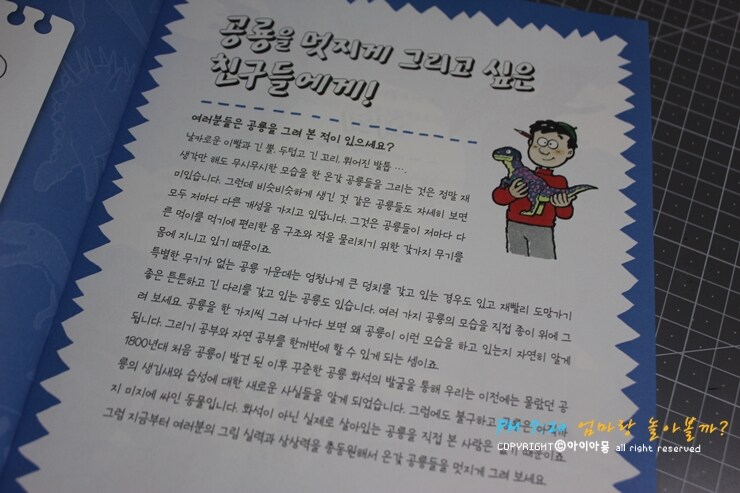 공룡을 멋지게 그리고 싶은
친구들에게!
여러분들은 공룡을 그려 본 적이 있으세요?
날카로운 이빨과 긴 뿔, 두텁고 긴 꼬리, 휘어진 발톱 ….
생각만 해도 무시무시한 모습을 한 온갖 공룡들을 그리는 것은 정말 재
미있습니다. 그런데 비슷비슷하게 생긴 것 같은 공룡들도 자세히 보면
모두 저마다 다른 개성을 가지고 있답니다. 그것은 공룡들이 저마다 다
른 먹이를 먹기에 편리한 몸 구조와 적을 물리치기 위한 갖가지 무기를
몸에 지니고 있기 때문이죠.
특별한 무기가 없는 공룡 가운데는 엄청나게 큰 덩치를 갖고 있는 경우도 있고 재빨리 도망가기
좋은 튼튼하고 긴 다리를 갖고 있는 공룡도 있습니다. 여러 가지 공룡의 모습을 직접 종이 위에 그
려 보세요. 공룡을 한 가지씩 그려 나가다 보면 왜 공룡이 이런 모습을 하고 있는지 자연히 알게
됩니다. 그리기 공부와 자연 공부를 한꺼번에 할 수 있게 되는 셈이죠.
1800년대 처음 공룡이 발견 된 이후 꾸준한 공룡 화석의 발굴을 통해 우리는 이전에는 몰랐던 공
룡의 생김새와 습성에 대한 새로운 사실들을 알게 되었습니다. 그럼에도 불구하고 공룡은
지 미지에 싸인 동물입니다. 화석이 아닌 실제로 살아있는 공룡을 직접 본 사람은 없기 때문이죠.
그럼 지금부터 여러분의 그림 실력과 상상력을 총동원해서 온갖 공룡들을 멋지게 그려 보세요.
엄마랑 놀아볼까?
COPYRIGHTⓒ아이아몽 all right reserved